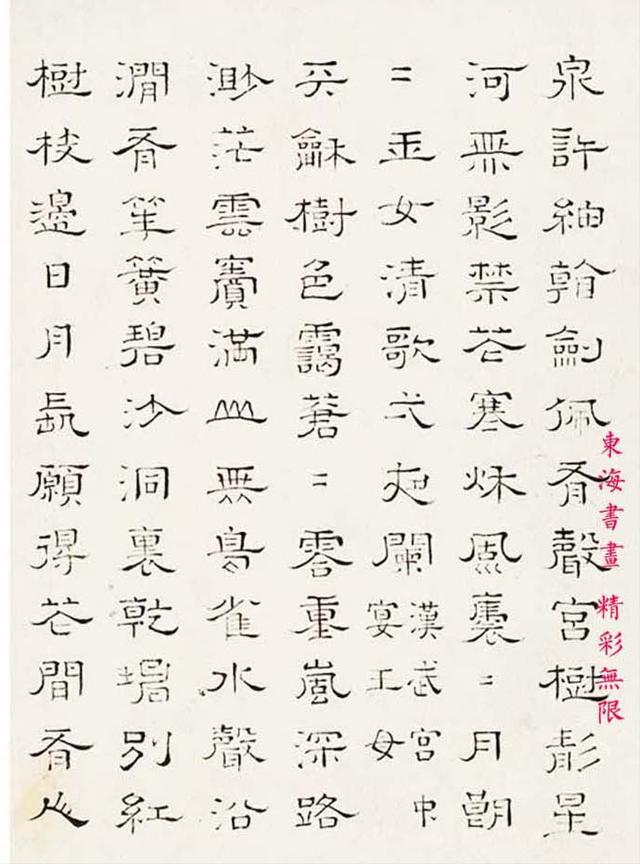 泉許細看劍佩有聲宮樹靜星
河無影禁花寒秋風裊=月朗
=玉女清歌弌夜闌
漢武宮中
宴王母
天龢樹色靄蒼=霞重嵐深路
渺茫雲竇滿山無鳥雀水聲沿
澗有笙簧碧沙洞裏乾坤別紅
樹枝邊日月長願得花間有人
東海書畫 精彩無限